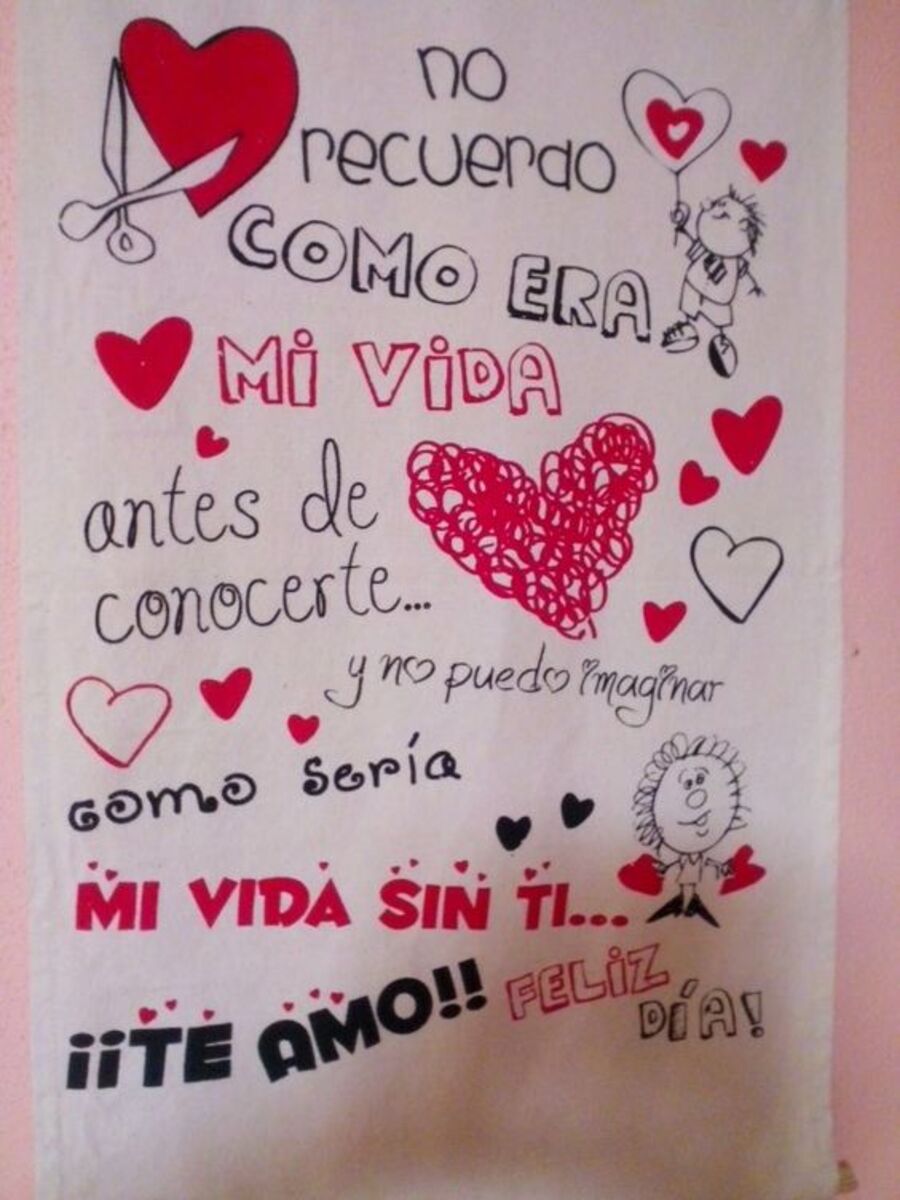 no
recuerdo
COMO ERA
Mi ViDA
antes de
conocerte...
y no puedo imaginar
como sería
MI VIDA SIN TI...
¡¡TE AMO!! FELiZ
DÍA!